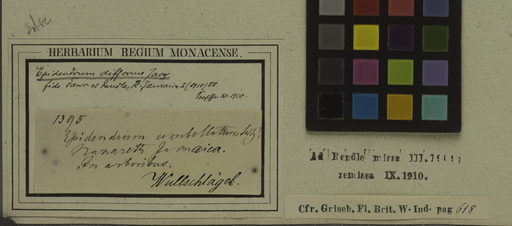 HERBARIUM REGIUM MONACENSE.
Epidendrum difforme Jacq
fide Fawc et Rendle,
XI. 1910.
1308
Epidendrum umbellatum Sw.
Nazareth Jamaica.
In arboribus.
Wullschlägel.
Ad Rendle missa III.
remissa IX. 1910.
Cfr. Griseb. Fl. Brit. W-Ind- pag 618